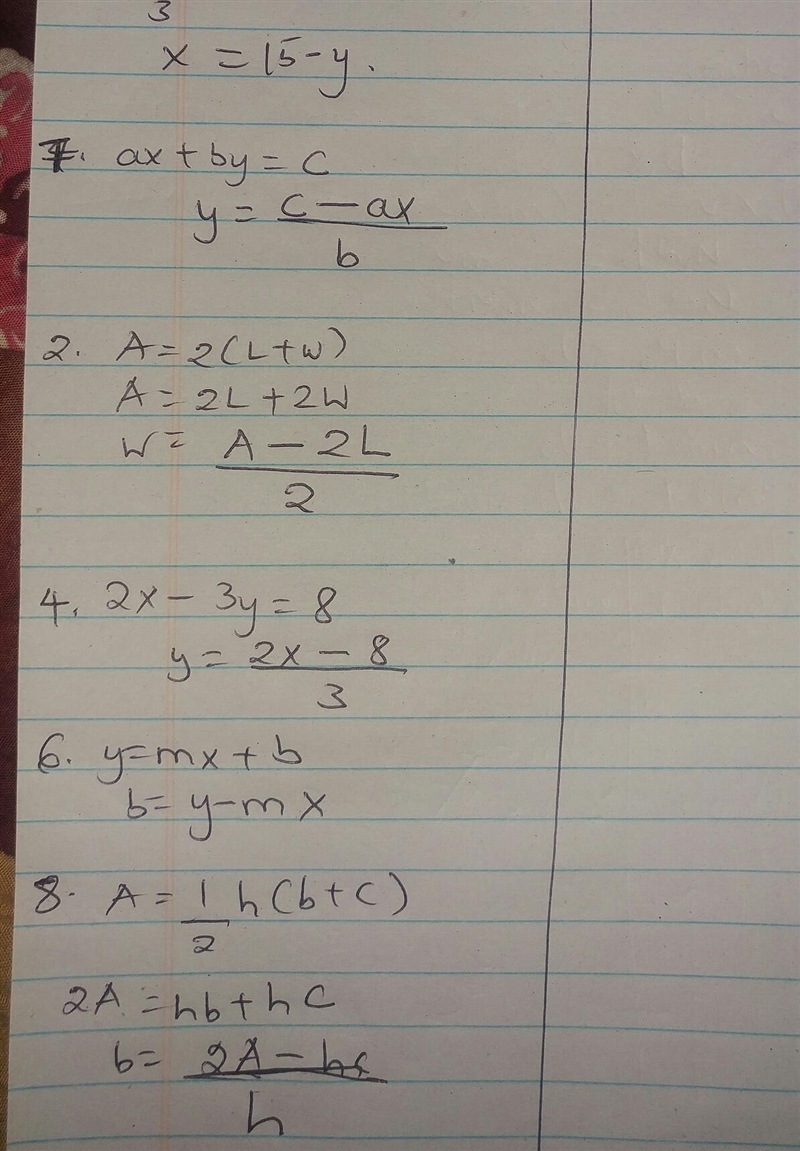 3
x = 15 - y.
7. ax + by = c
y = c - ax
b
2. A = 2(L + W)
A = 2L + 2W
W = A - 2L
2
4. 2x - 3y = 8
y = 2x - 8
3
6. y = mx + b
b = y - mx
8. A = 1 h(b + c)
2
2A = hb + hc
b = 2A - hc
h